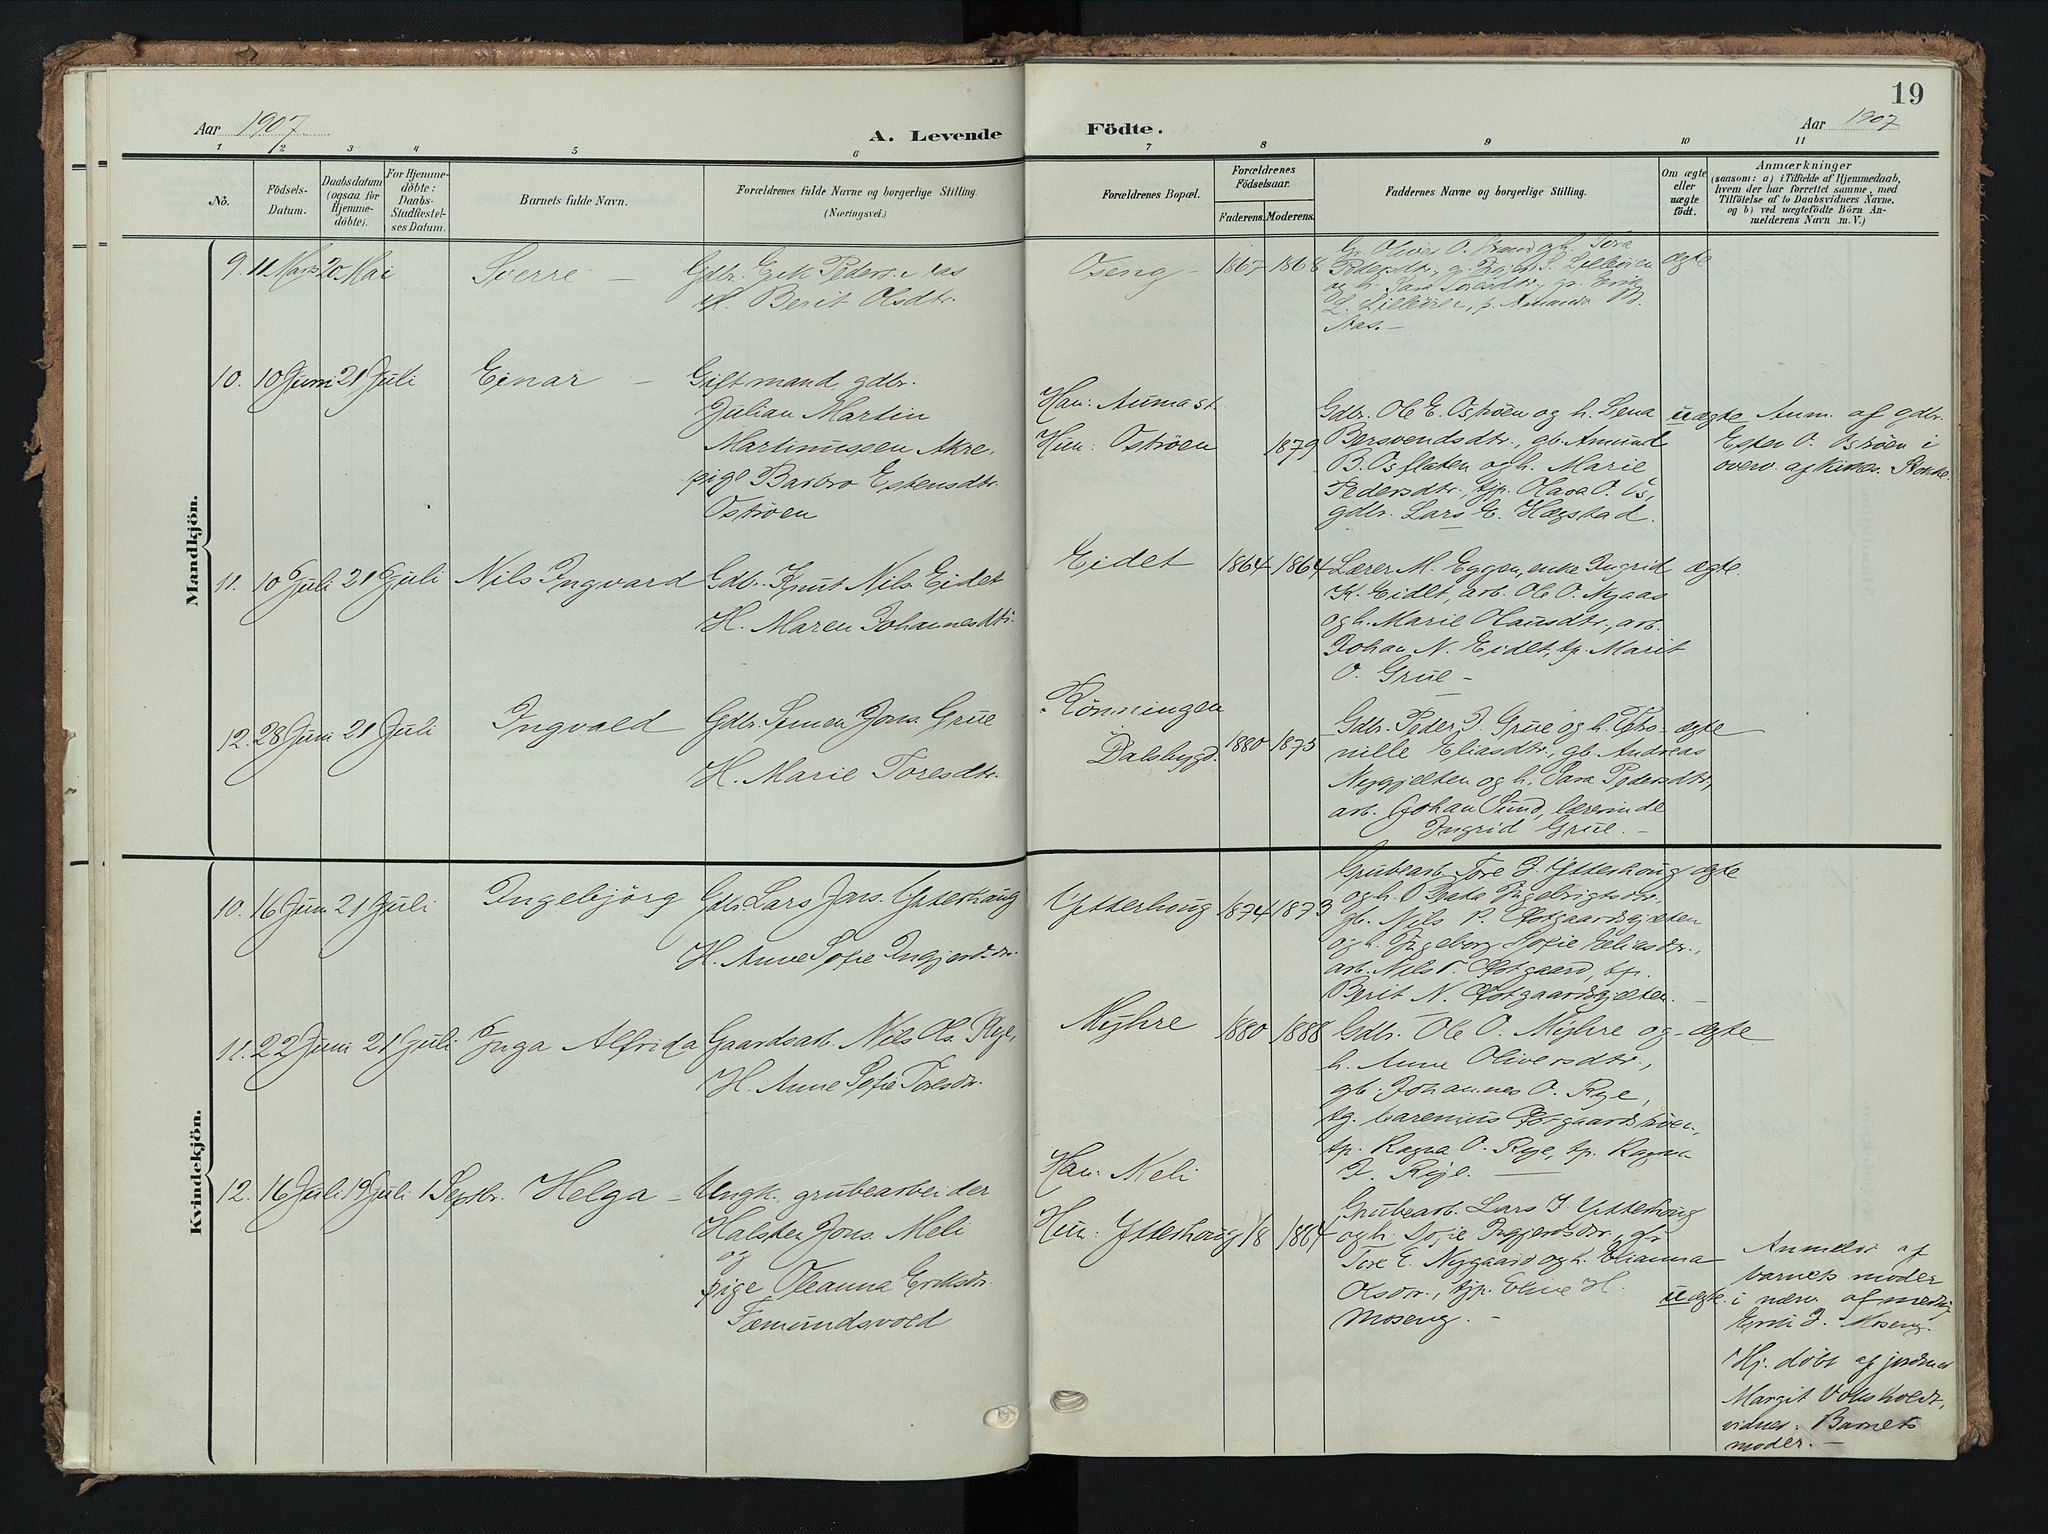 19
Aar 1907.
A. Levende
Födte.
Aar 1907
1 2 3 4 5 6 7 8 9 10 11
No.
Födsels-
Datum.
Daabsdatum
(ogsaa for
Hjemme-
döbte).
For Hjemme-
döbte:
Daabs-
Stadfæstel-
ses Datum.
Barnets fulde Navn.
Forældrenes fulde Navne og borgerlige Stilling.
(Næringsvei.)
Forældrenes Bopæl.
Forældrenes
Födselsaar.
Faderens. Moderens.
Faddernes Navne og borgerlige Stilling.
Om ægte
eller
uægte
födt.
Anmærkninger
(saasom: a) i Tilfælde af Hjemmedaab,
hvem der har forrettet samme, med
Tilföielse af to Daabsvidners Navne,
og b) ved uægtefödte Börn An-
melderens Navn m. V.)
Mandkjön.
9. 11 Marts 20 Mai
Sverre –
Gdbr. Erik Peders. Aas
H. Berit Olsdtr.
Oseng –
1867 1868
Pedersdtr., g. L. Lilleöien
L. Lilleöien, p. Amanda B.
Aas. –
ægte
10. 10 Juni 21 Juli
Einar –
Gift mand, gdbr.
Julian Martin
Martinussen Akre,
pige Barbro Estensdtr.
Oströen
Han: Aumast.
Hun: Oströen
1879
Gdbr. Ole E. Oströen og h. Lena
Bersvendsdtr., gb. Amund
B. Osflaten og h. Marie
Pedersdtr., tjp. Olava O. Os,
gdbr. Lars E. Hægstad.
uægte
Anm. af gdbr.
Esten O. Oströen i
overv. af
11. 10 Juli 21 Juli
Nils Ingvard
Gdbr. Knut Nils. Eidet
H. Maren Johannesdtr.
Eidet
1864 1864
Lærer M. Eggen, enke Ingrid
K. Eidet, arb. Ole O. Nyaas
og h. Marie Olausdtr., arb.
Johan N. Eidet, tp. Marit
O. Grue –
ægte.
12. 28 Juni 21 Juli
Ingvald
Gdbr. Simen Jons. Grue
H. Marie Toresdtr.
Rönningen
Dalsbygd.
1880 1875
Gdbr. Peder J. Grue og h. Per-
nille Eliasdtr., gb. Andreas
Nygjelten og h. Sara Pedersdtr.,
arb. Johan Sund, lærerinde
Ingrid Grue. –
ægte
Kvindekjön.
10. 16 Juni 21 Juli
Ingebjörg
Gdbr. Lars Jons. Ytterhaug
H. Anne Sofie Ingjerdsdtr.
Ytterhoug
1874 1873
Grubearb. Tore J. Ytterhoug
og h. Beata Ingebrigtsdtr.
gb. Nils P. Östgaardsgjelten
og h. Ingeborg Sofie Eliasdtr.,
arb. Nils P. Östgaard, tp.
Berit N. Östgaardsgjelten. –
ægte
11. 22 Juni 21 Juli
Inga Alfrida
Gaardsarb. Nils Ols. Rye,
H. Anne Sofie Toresdtr.
Myhre
1880 1888
Gdbr. Ole O. Myhre og
h. Anne Oliversdtr.,
gb. Johannes O. Rye,
tg. Carenius
tp. Ragna O. Rye, tp. Ragna
J. Rye.
ægte
12. 16 Juli 19 Juli 1 Septbr.
Helga –
Ungk. grubearbeider
Halsten Jons. Meli
og
pige Oleanna Eriksdtr.
Fæmundsvold
Han: Meli
Hun: Ytterhoug
18 1864
Grubearb. Lars J. Ytterhoug
og h. Sofie Ingjerdsdtr., gb.
Tore E. Nygaard og h. Elianna
Olsdtr., tjp. Eline H.
Moseng. –
uægte.
Anmeldt af
barnets moder
i nærv. af medhj.
Erik J. Moseng.
Hj. döbt af jordmor
Margit
vidner: Barnets
moder. –